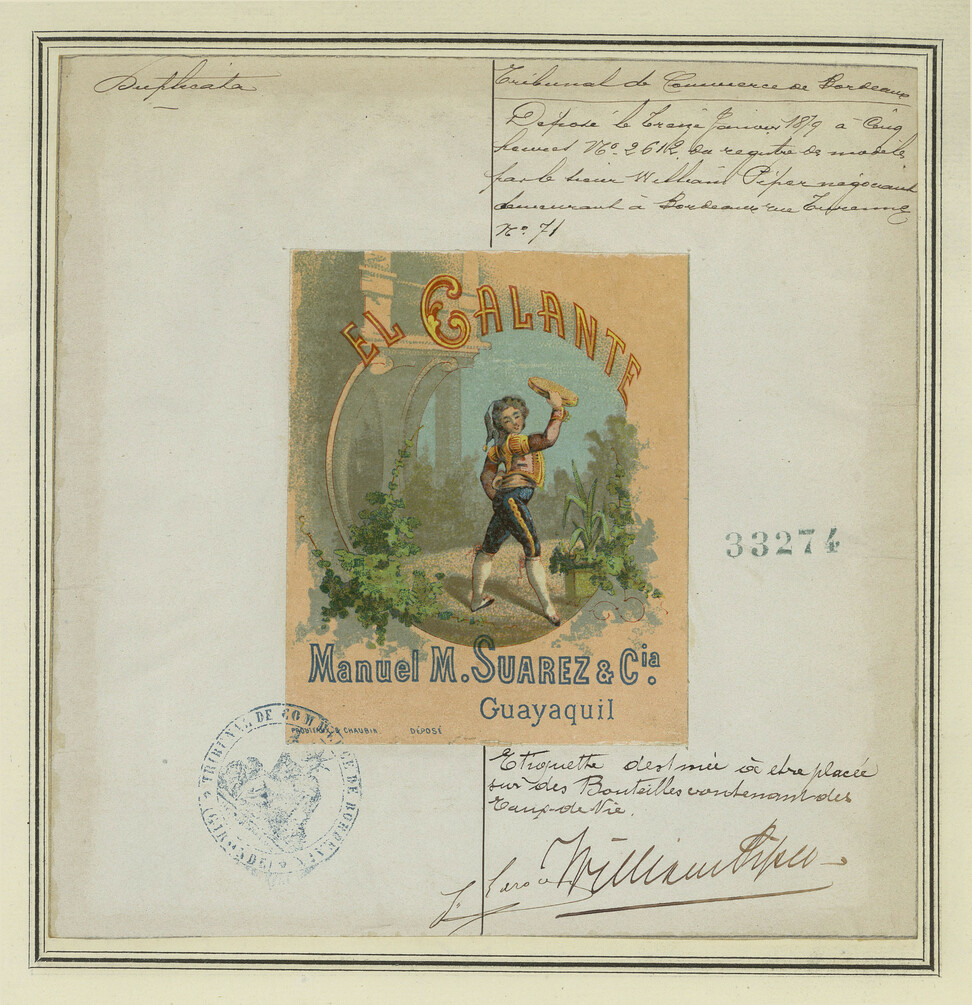 Duplicata
Tribunal de Commerce de Bordeaux
Déposé le treize Janvier 1879 à Cinq
heures No. 2612 du registre des modèles
par le sieur William Piper négociant
demeurant à Bordeaux rue Turenne
No. 71
EL GALANTE
33274
Manuel M. SUAREZ & Cia.
Guayaquil
& CHAUBIN DÉPOSÉ
TRIBUNAL DE COMMERCE DE BORDEAUX
(GIRONDE)
Etiquette destinée à être placée
sur des Bouteilles contenant des
Eaux-de-Vie.
William Piper